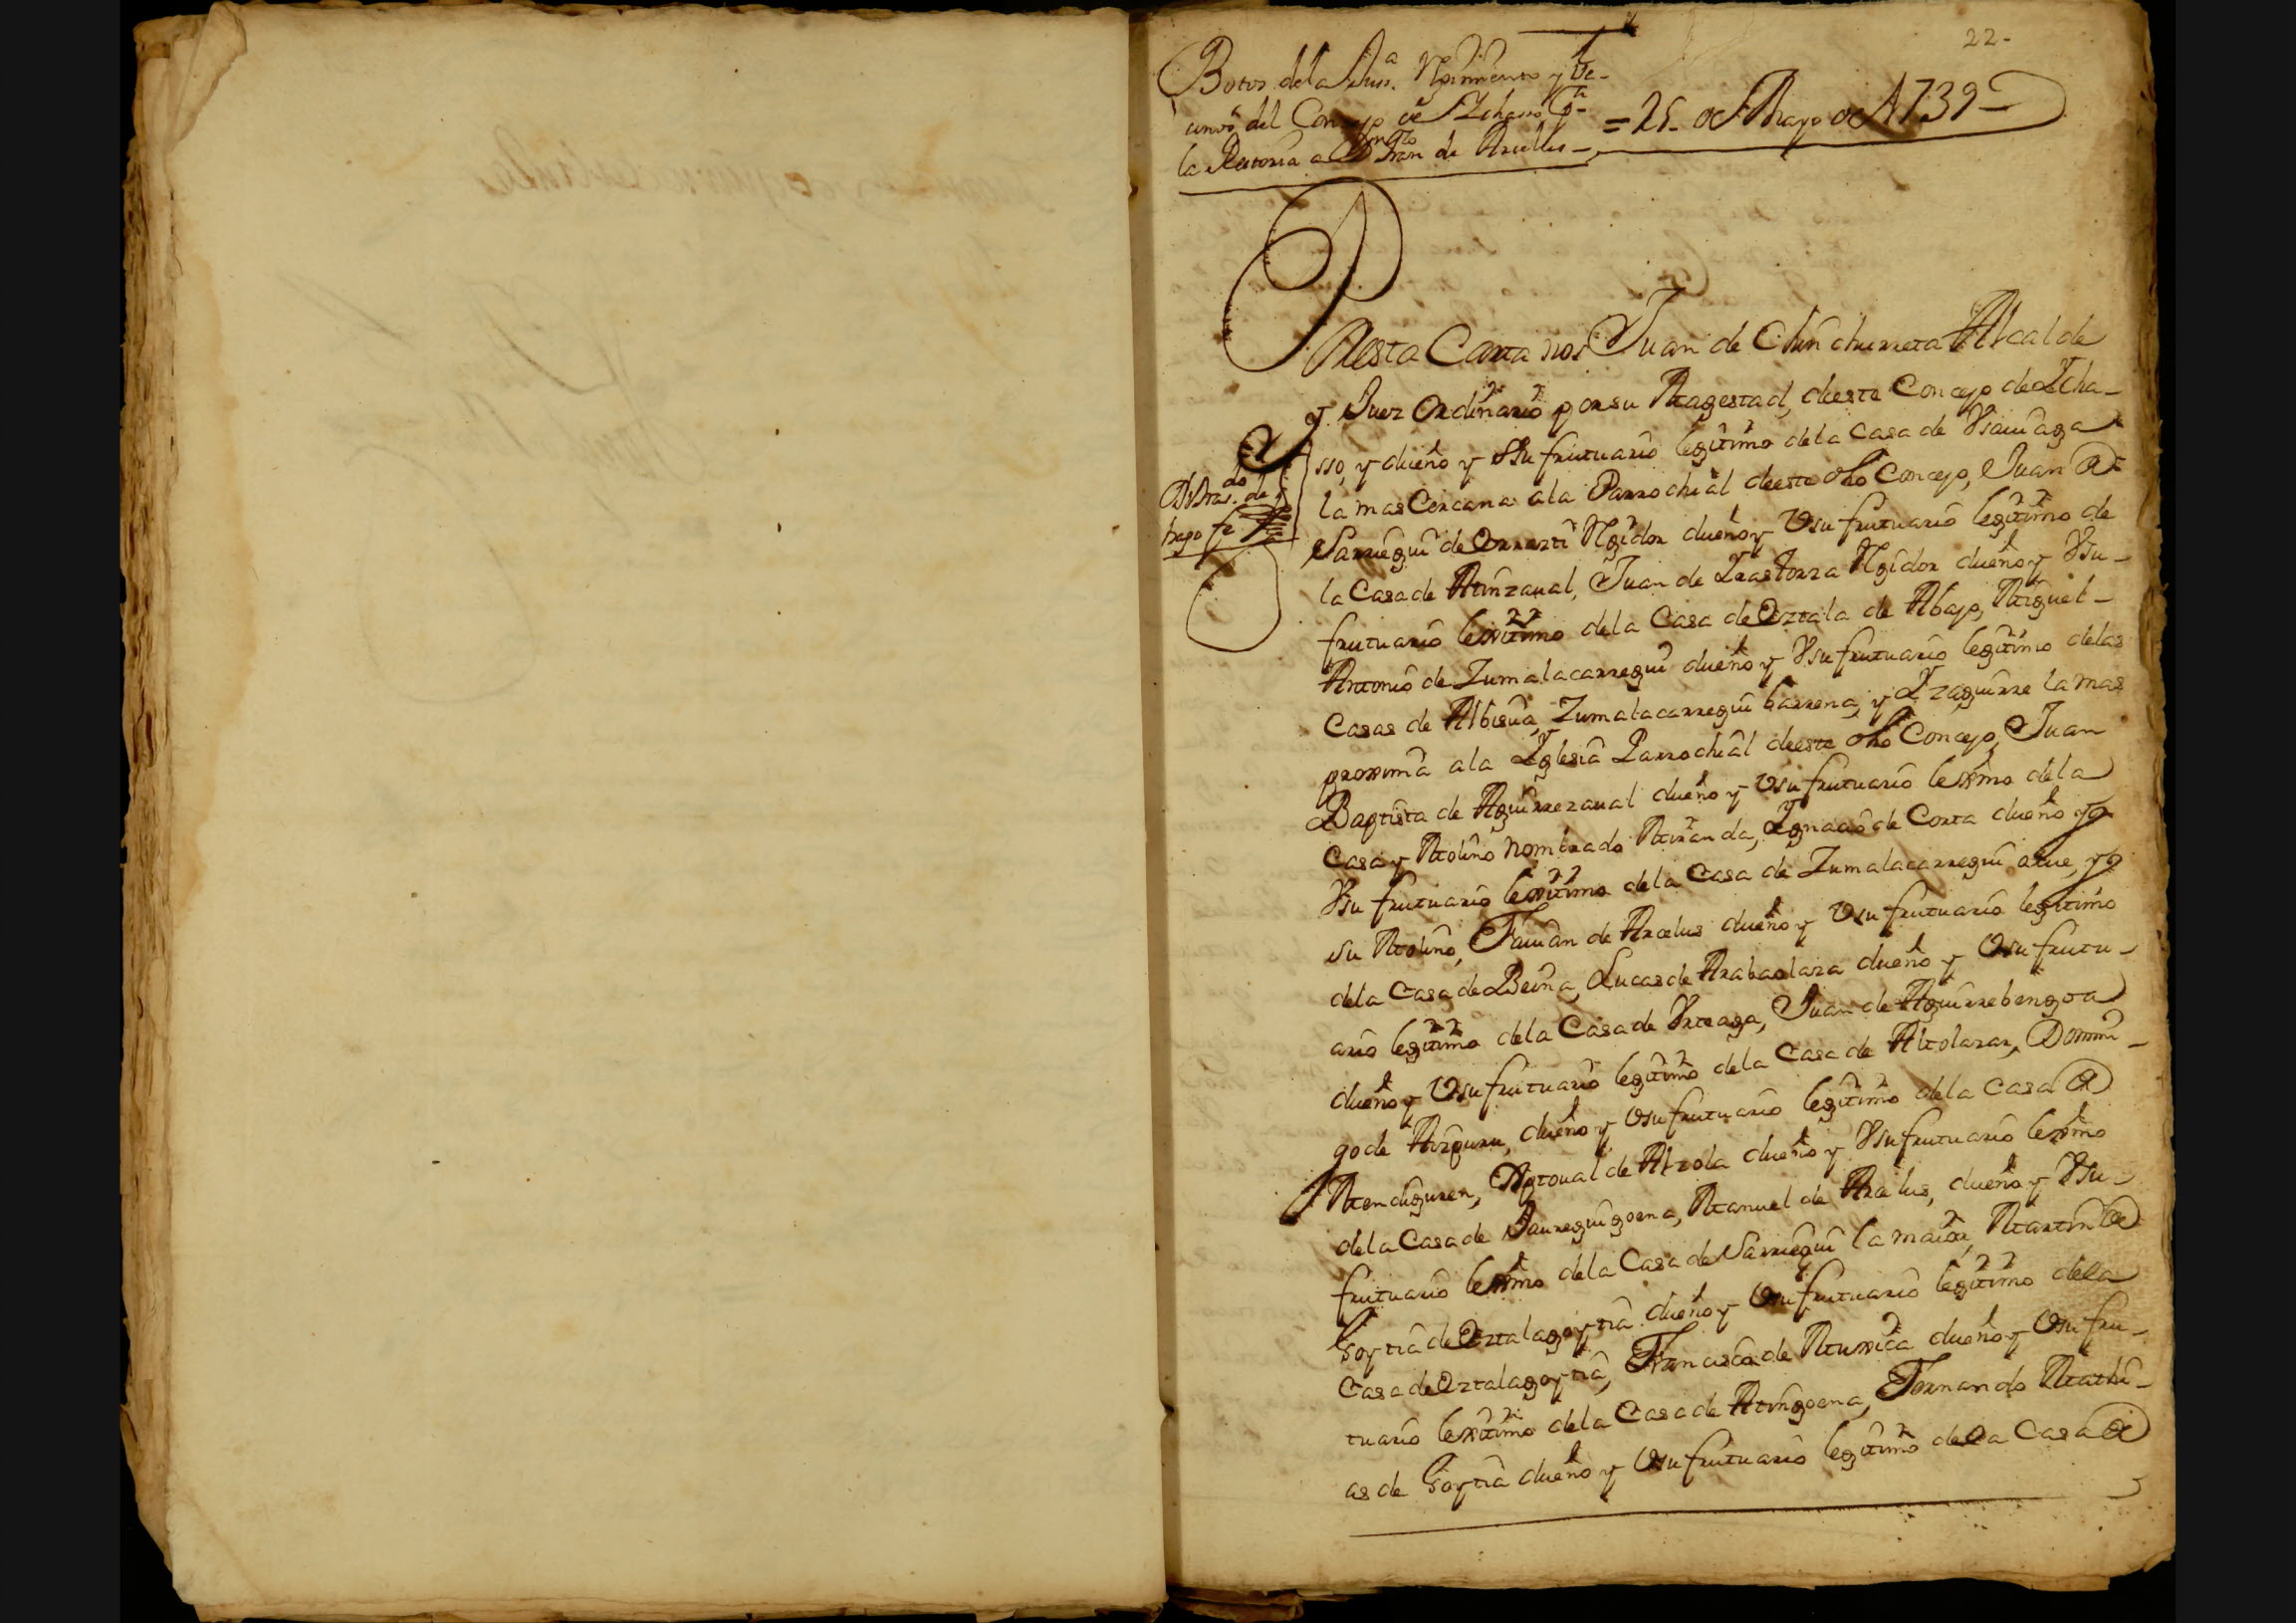 22-
Botos de la Jusª. Rgimiento y Ve-
cinos del Concejo de Ychasso pª
la Rectoria a Dn Franco de Arcelus-
= 25. de Mayo de 1739-
PResta Carta nos Juan de Chinchurreta Alcalde
y Juez Ordinario por su Magestad, de este Concejo de Ycha-
sso, y dueño y Vsufrutuario legitimo de la Casa de Vsauiaga
la mas Cercana a la Parrochial de este dho Concejo, Juan de
Sarriegui de Orrazti Rgidor dueño y Vsufrutuario legitimo de
la Casa de Aanzaual, Juan de Yrastorza Rgidor dueño y Vsu-
frutuario lexitimo de la Casa de Oztala de Abajo, Miguel-
Antonio de Zumalacarregui dueño y Vsufrutuario legitimo de las
Casas de Albisua, Zumalacarregui barrena, y Yzaguirre la mas
proxima a la Yglesia Parrochial de este dho Concejo, Juan
Baptista de Aguirrezaual dueño y Vsufrutuario lexmo de la
Casa y Molino nombrado Miranda, Ygnacio de Corta dueño y
Vsufrutuario lexitimo de la Casa de Zumalacarregui arue, y
su Molino, Fauian de Arcelus dueño y Vsufrutuario legitimo
de la Casa de Beina, Lucas de Arabaolaza dueño y Vsufrutu-
ario legitimo de la Casa de Vrteaga, Juan de Aguirrebengoa
dueño y Vsufrutuario legitimo de la Casa de Altolarar, Domin-
go de Aizpuru, dueño y Vsufrutuario legitimo de la Casa de
Mendiguren, Xptoual de Alzola dueño y Vsufrutuario lexmo
de la Casa de Jaureguigoena, Manuel de Arcelus, dueño y Vsu-
frutuario lexmo de la Casa de Sarriegui la maior, Martin de
Goytia de Oztalagoytia dueño y Vsufrutuario legitimo de la
Casa de Oztalagoytia, Francisco de Muxica dueño y Vsufru-
tuario lexitimo de la Casa de Amigoena, Fernando Mathi-
as de Goytia dueño y Vsufrutuario legitimo de la Casa de
do
hago fe